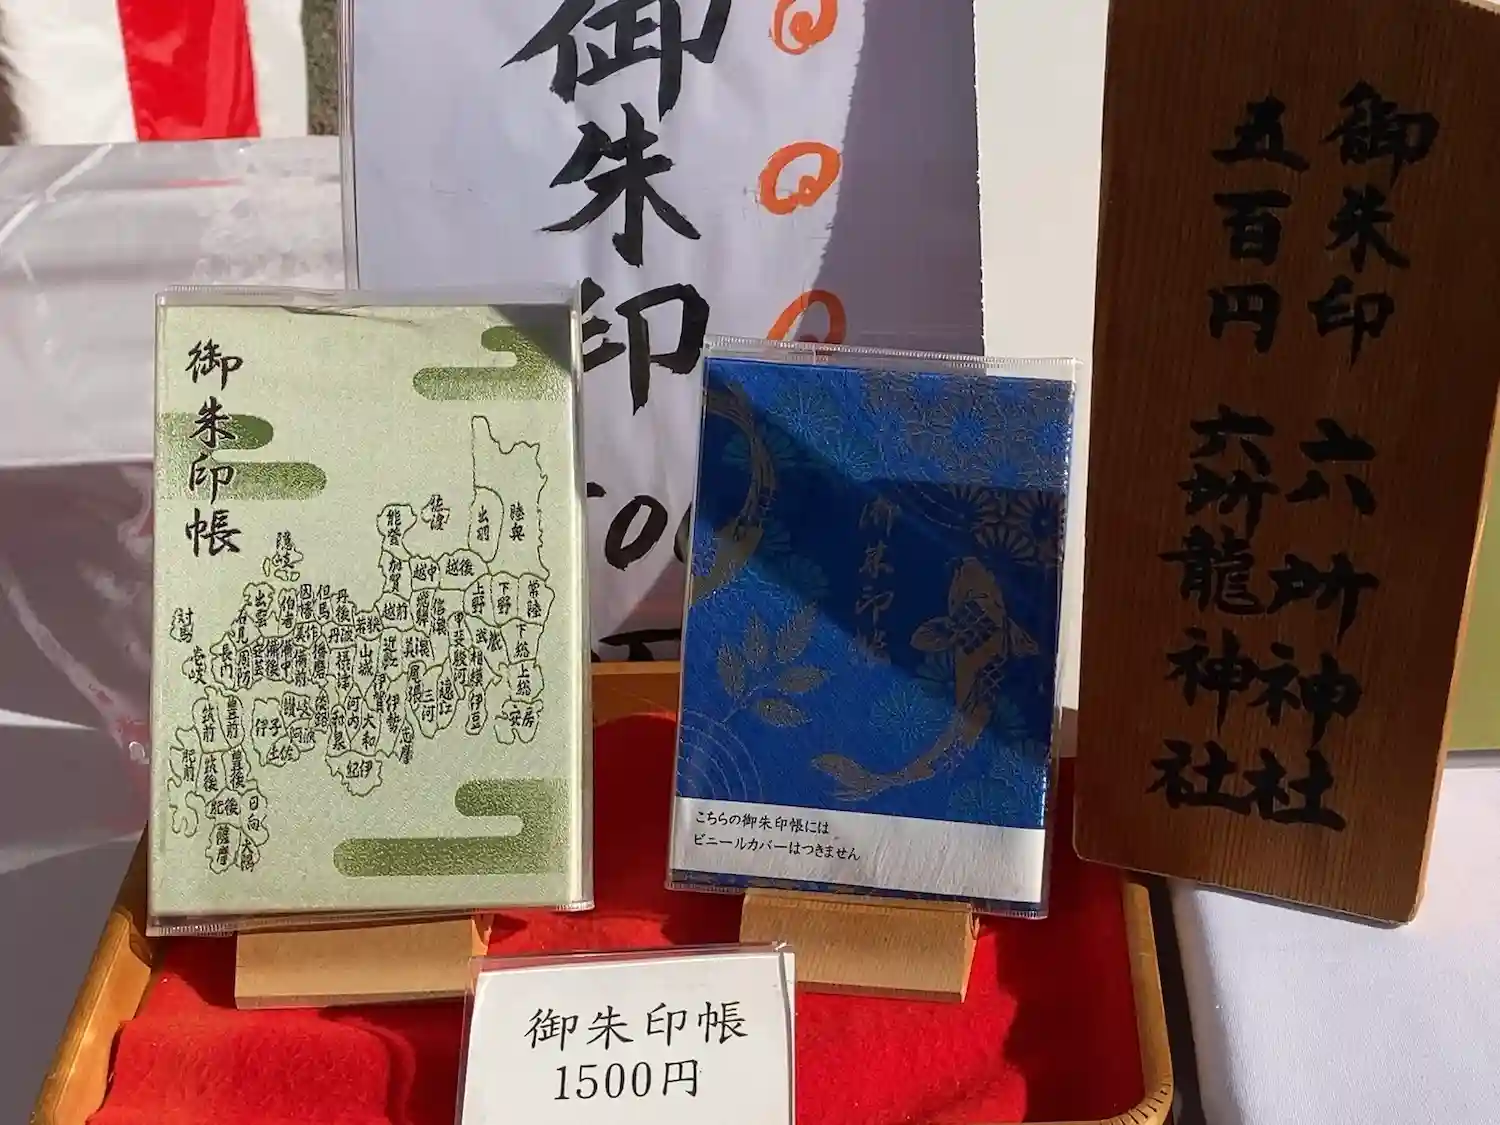 御朱印
御朱印帳
陸奥
出羽
佐渡
能登
加賀
越中
越後
常陸
下野
上野
隠岐
出雲
伯耆
因幡
但馬
丹後
丹波
若狭
越前
飛騨
信濃
甲斐
武蔵
下総
上総
安房
対馬
壱岐
石見
長門
周防
安芸
備後
備中
備前
美作
播磨
摂津
山城
近江
美濃
尾張
三河
遠江
駿河
相模
伊豆
伊賀
伊勢
志摩
河内
大和
和泉
紀伊
淡路
阿波
讃岐
伊予
土佐
筑前
豊前
肥前
筑後
豊後
肥後
日向
薩摩
大隅
御朱印帳
こちらの御朱印帳には
ビニールカバーはつきません
御朱印帳
1500円
御朱印 六所神社
五百円 六所龍神社